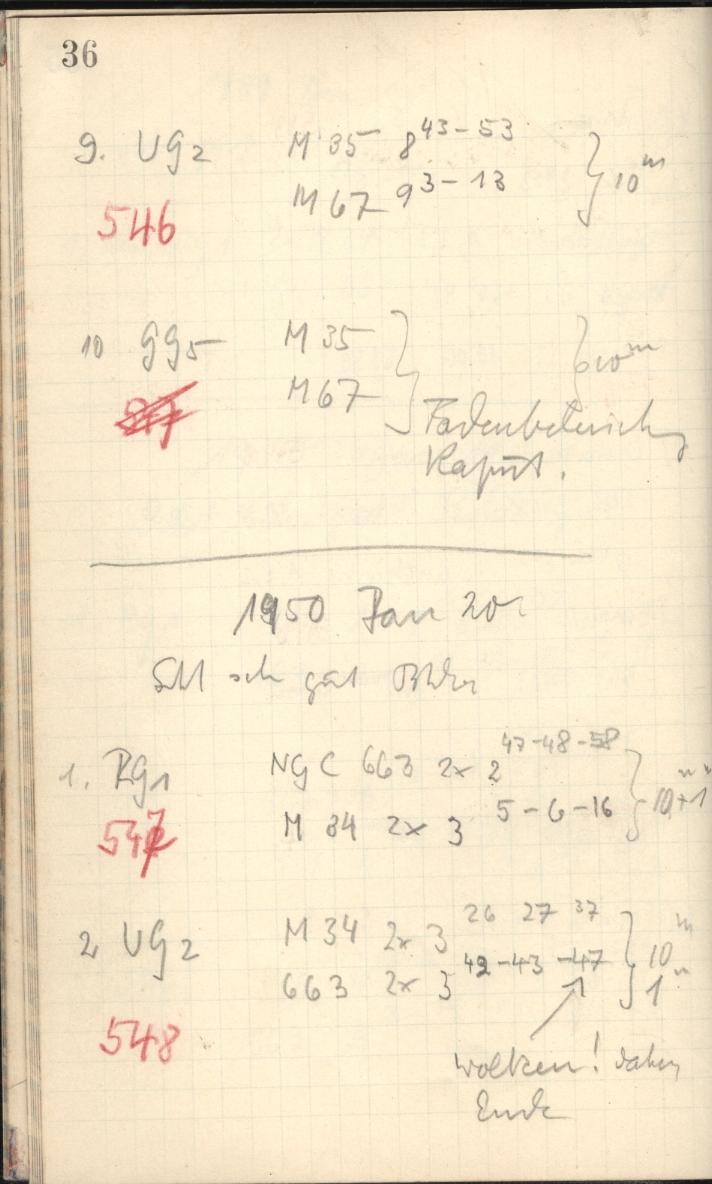 36
9. UG2 M 35 8 43-53
M 67 9 3-13 } 10 m
546
10 GG5 M 35
M 67 } } 10 m
Kaput.
1950 Jan 20.
gut
1. RG1 NGC 663 2x 2 47-48-58
M 34 2x 3 5-6-16 } 10+1 m
547
2. UG2 M 34 2x 3 26 27 37
663 2x 3 42-43-47 } 10 m 1 m
548
Wolken! daher
Ende